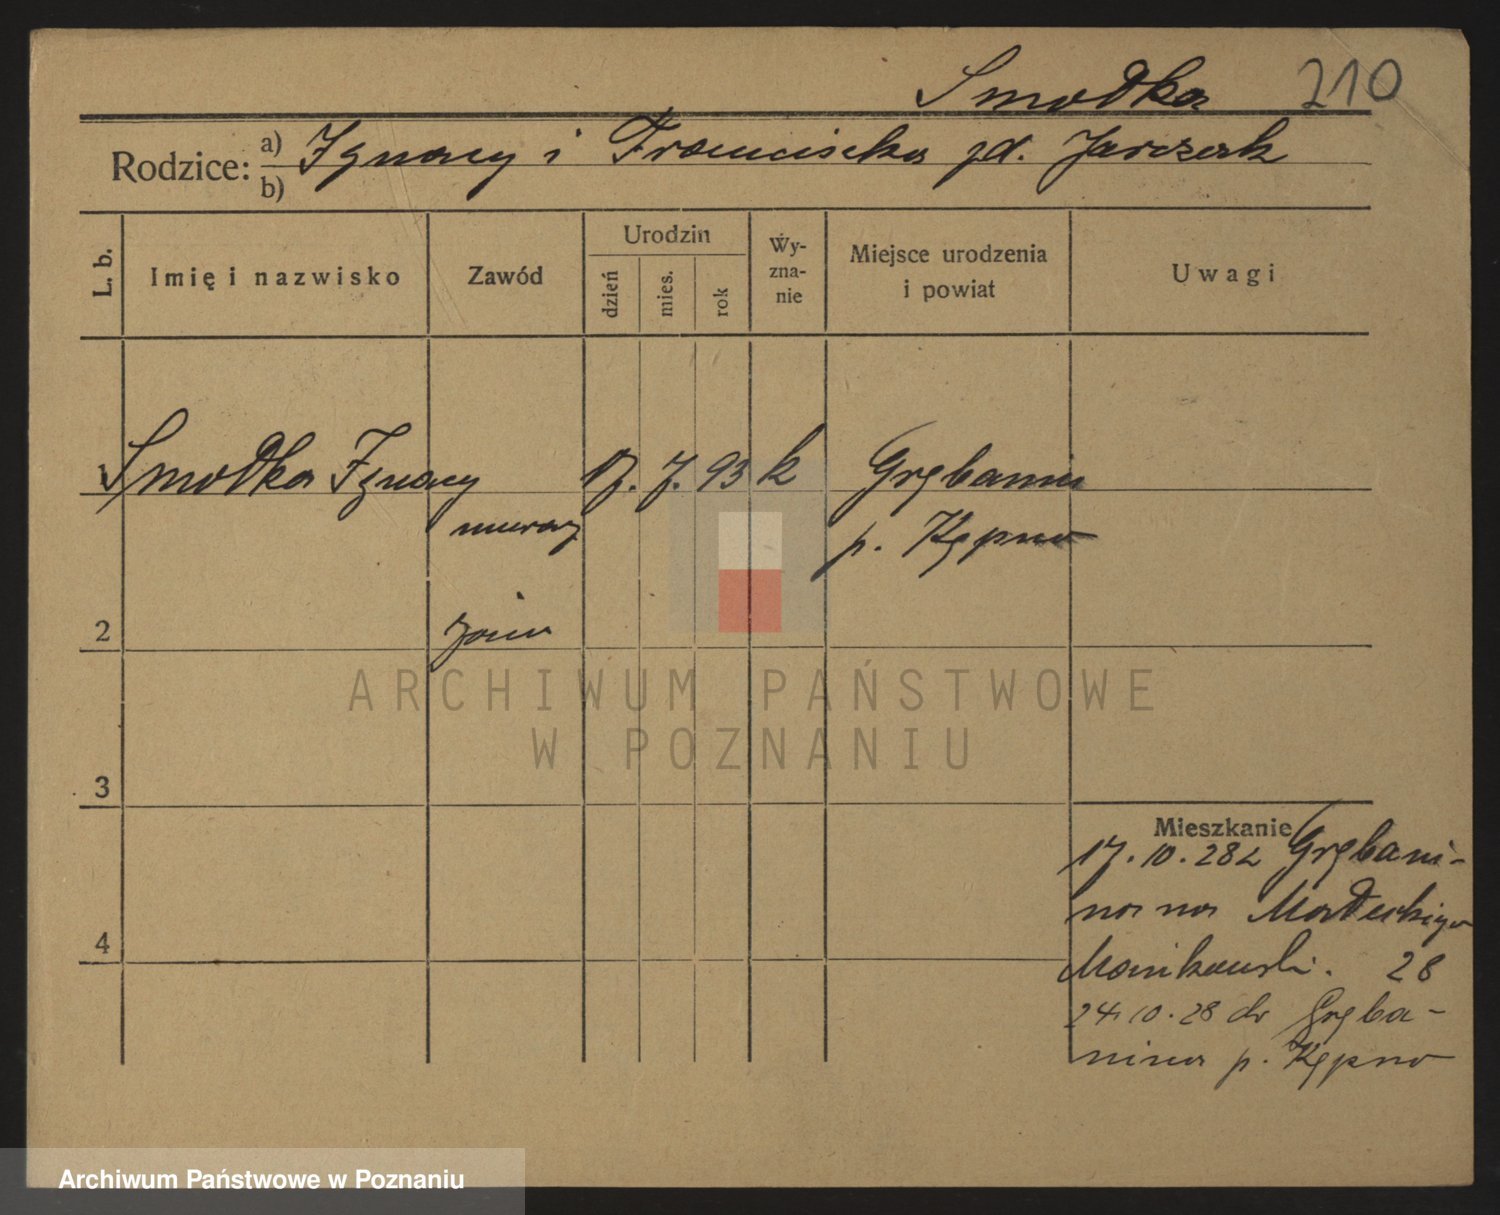 Smodka 210
Rodzice: a) Ignacy i Franciszka zd. Jarczak
b)
L. b.
Imię i nazwisko
Zawód
Urodzin
dzień
mies.
rok
Wy-
zna-
nie
Miejsce urodzenia
i powiat
Uwagi
1 Smodka Ignacy 17. 7. 93 k Grębanin
murarz p. Kępno
2 żon.
ARCHIWUM PAŃSTWOWE
W POZNANIU
3
Mieszkanie
17. 10. 28 z Grębani-
na na
28
4
24 10. 28 do Gręba-
nina p. Kępno
Archiwum Państwowe w Poznaniu